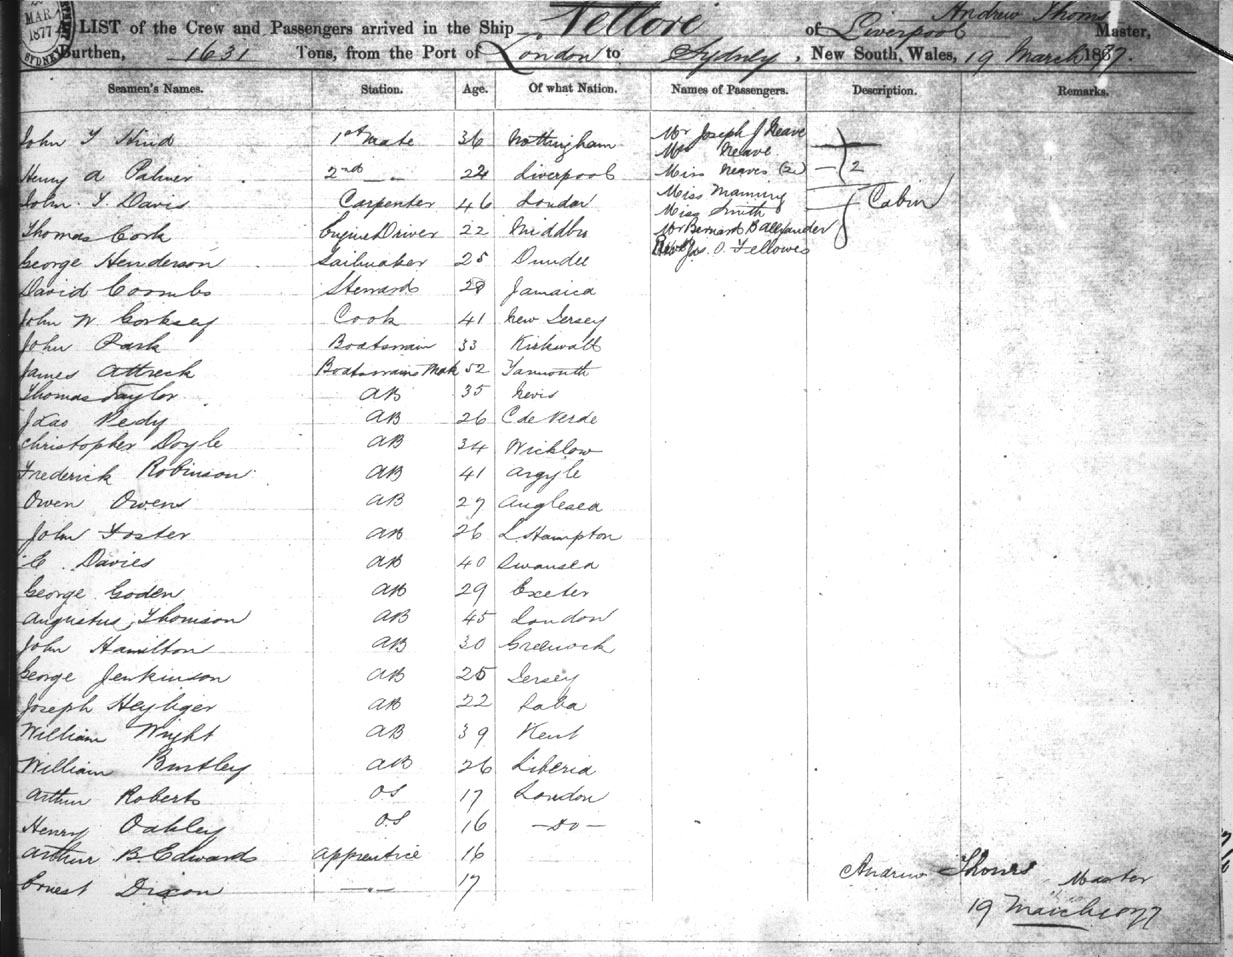 MAR
1877
SYDNEY
LIST of the Crew and Passengers arrived in the Ship Nellore of Liverpool Andrew Thoms Master,
Burthen, 1631 Tons, from the Port of London to Sydney, New South Wales, 19 March 1877.
Seamen's Names. Station. Age. Of what Nation. Names of Passengers. Description. Remarks.
John T Hird 1st Mate 36 Nottingham Mr Joseph J Neave
Mrs Neave
Henry A Palmer 2nd —"— 24 Liverpool Miss Neaves (2) — 2
John. T. Davis Carpenter 46 London Miss Manning Cabin
Miss Smith
Thomas Cork Engine Driver 22 Middbro Mr Bernard B Allexander
Revd Jas. O. Fellowes
George Henderson Sailmaker 25 Dundee
David Coombs Steward 28 Jamaica
John W Gorksey Cook 41 New Jersey
John Park Boatswain 33 Kirkwall
James Attreck Boatswains Mate 52 Yarmouth
Thomas Taylor AB 35 Nevis
Pedy AB 26 C de Verde
Christopher Doyle AB 34 Wicklow
Frederick Robinson AB 41 Argyle
Owen Owens AB 27 Anglesea
John Foster AB 26 L Hampton
C. Davies AB 40 Swansea
George Goden AB 29 Exeter
Augustus Thomson AB 45 London
John Hamilton AB 30 Greenock
George Jenkinson AB 25 Jersey
Joseph Heyliger AB 22 Saba
William Wright AB 39 Kent
William Bentley AB 26 Liberia
Arthur Roberts OS 17 London
Henry Oakley OS 16 — do —
Arthur B. Edwards Apprentice 16
Ernest Dixon —"— 17
Andrew Thoms Master
19 March 1877